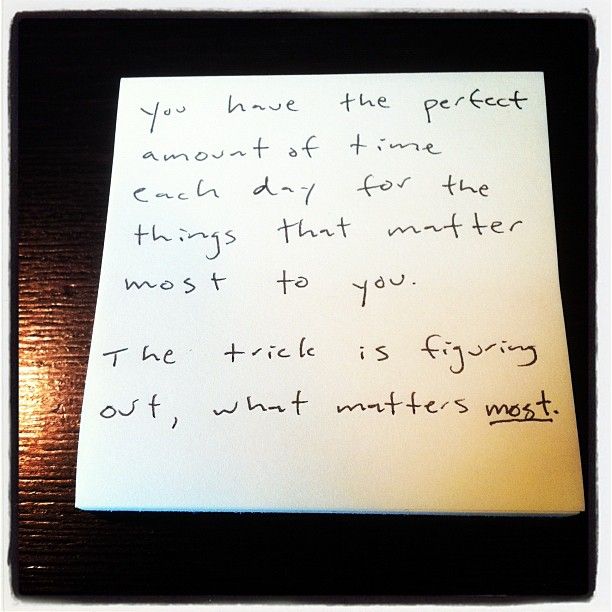 You have the perfect
amount of time
each day for the
things that matter
most to you.
The trick is figuring
out, what matters most.